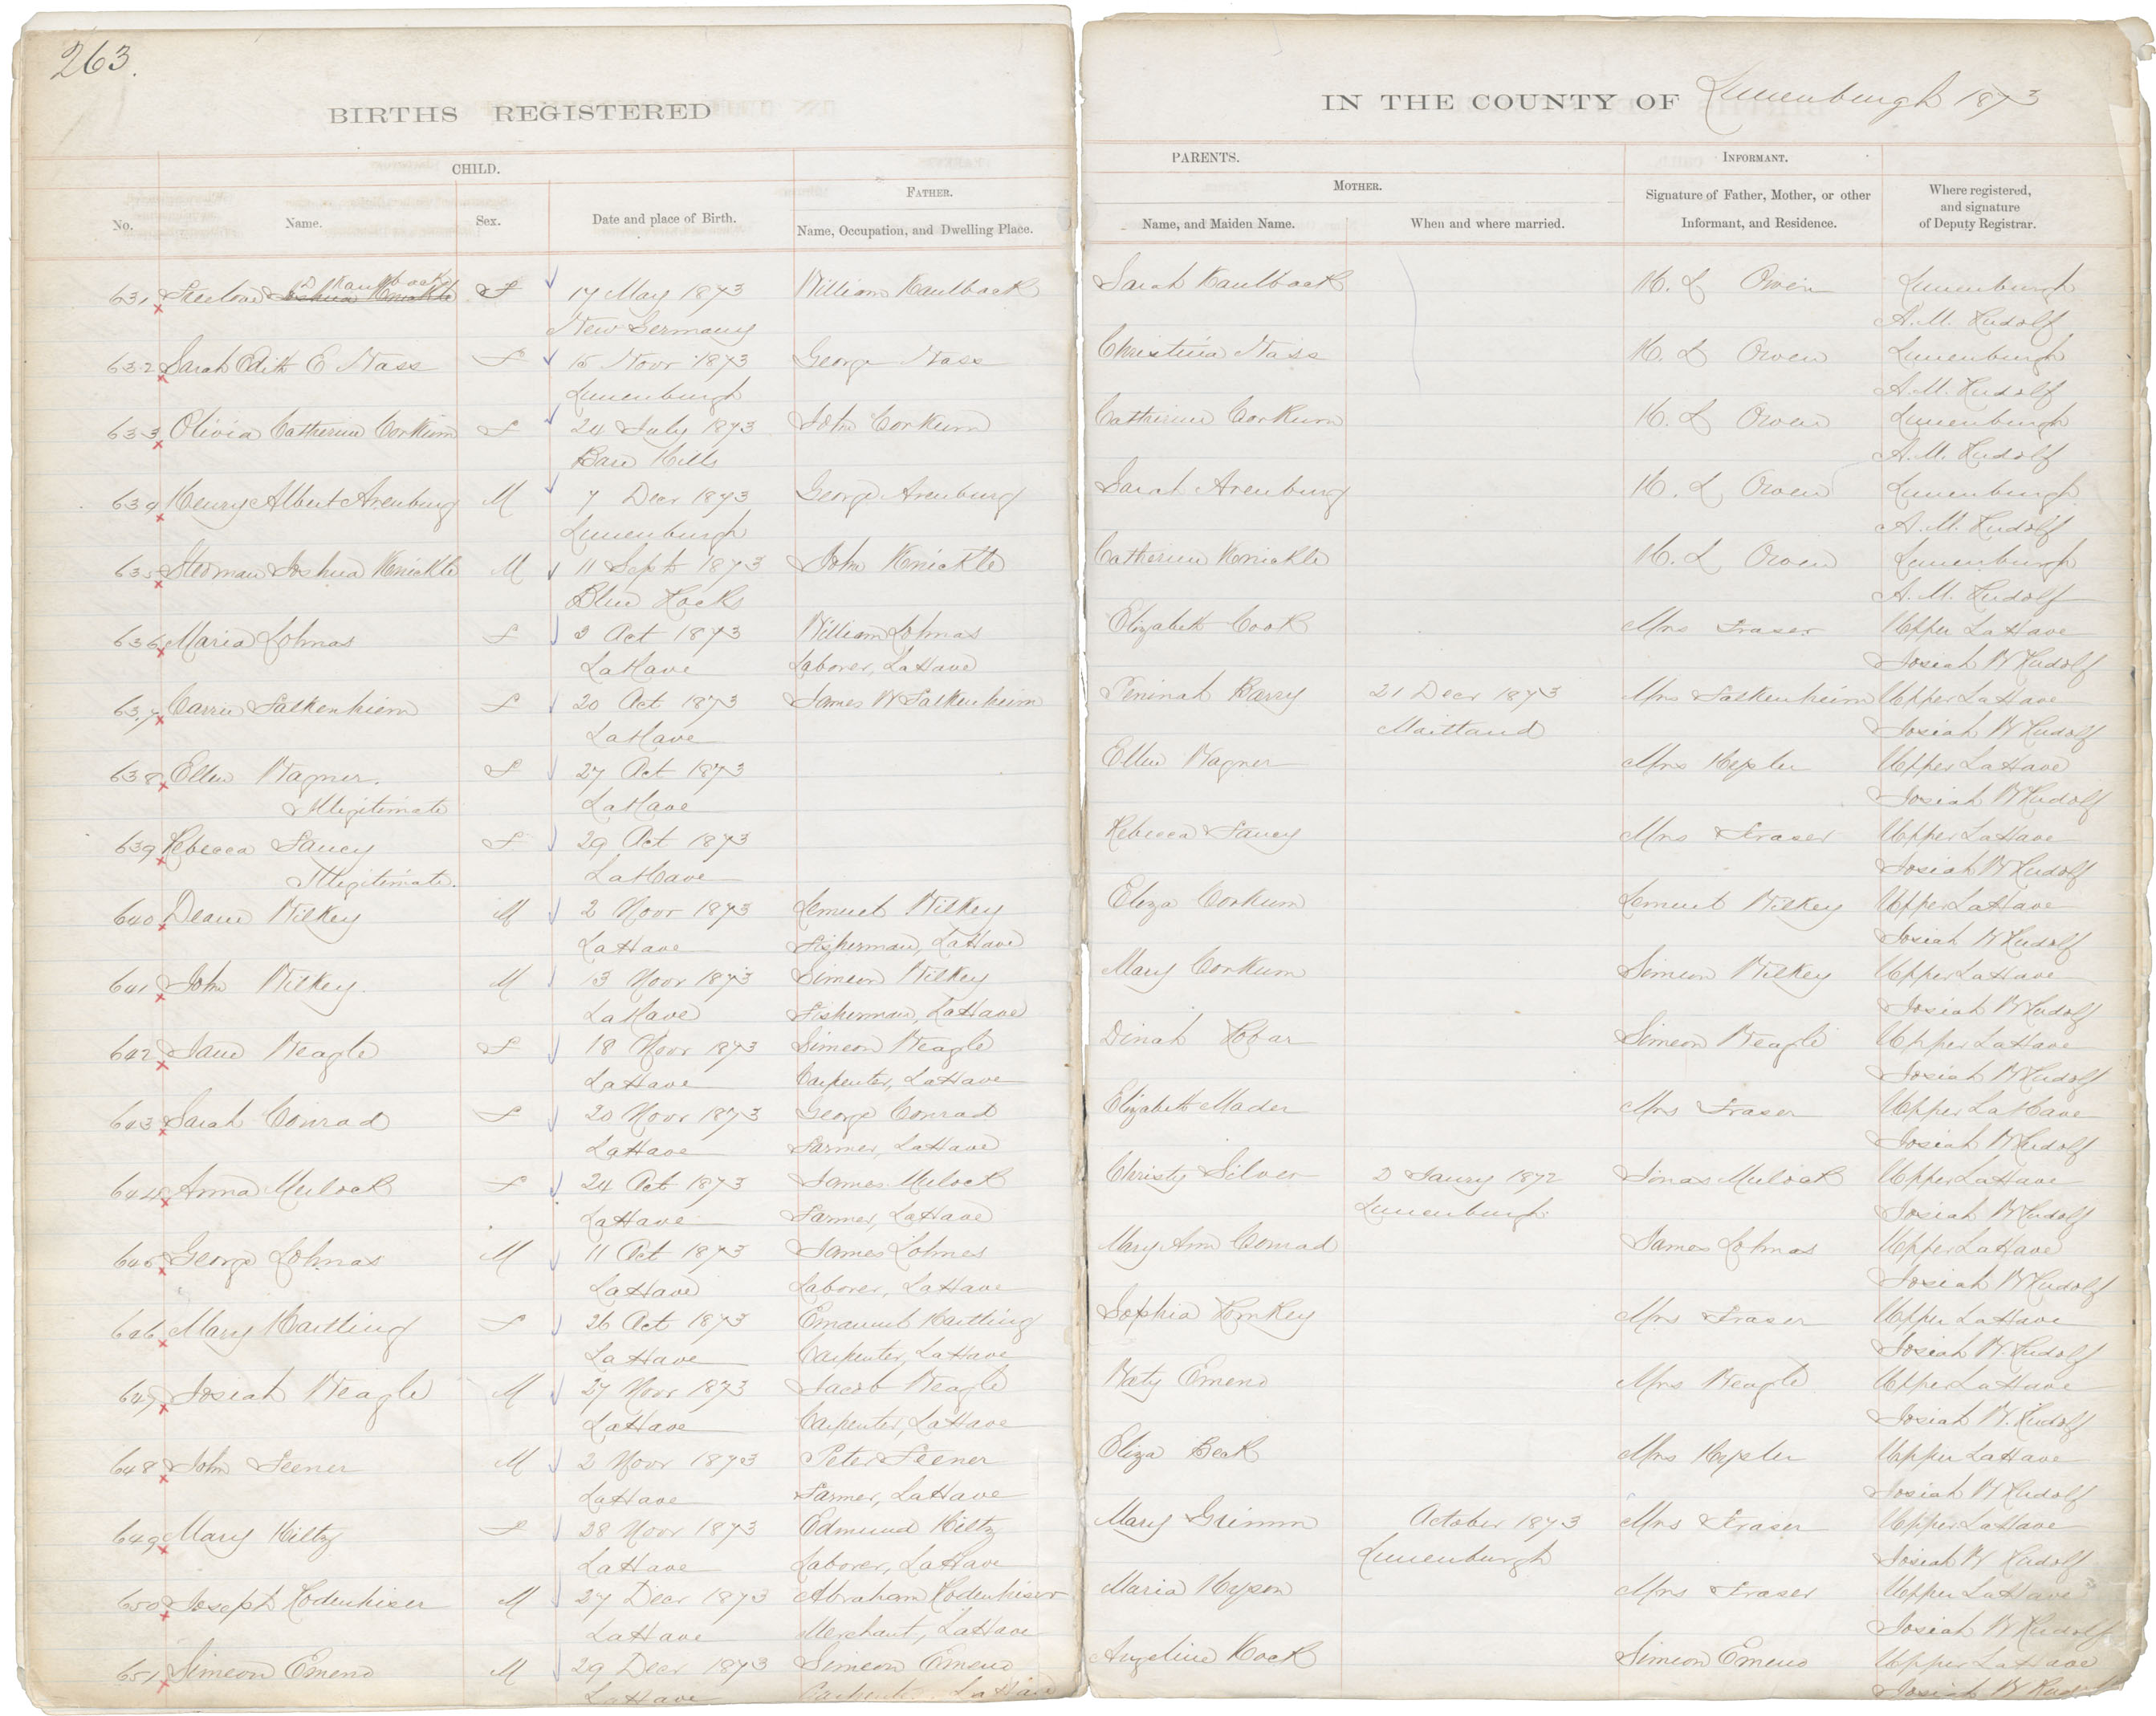 263.
BIRTHS REGISTERED IN THE COUNTY OF Lunenburgh 1873
CHILD. PARENTS. INFORMANT. Where registered, and signature of Deputy Registrar.
FATHER. MOTHER. Signature of Father, Mother, or other Informant, and Residence.
No. Name. Sex. Date and place of Birth. Name, Occupation, and Dwelling Place. Name, and Maiden Name. When and where married.
631 Freelove D Kaulback F 17 May 1873 William Kaulback Sarah Kaulback H. L Owen Lunenburgh
New Germany A. M. Rudolf
632 Sarah Edith E Nass F 15 Novr 1873 George Nass Christina Nass H. L Owen Lunenburgh
Lunenburgh A. M. Rudolf
633 Olivia Catherine Corkum F 24 July 1873 John Corkum Catherine Corkum H. L Owen Lunenburgh
Bare Hills A. M. Rudolf
634 Henry Albert Arenburg M 7 Decr 1873 George Arenburg Sarah Arenburg H. L Owen Lunenburgh
Lunenburgh A. M. Rudolf
635 Stedman Joshua Knickle M 11 Sept 1873 John Knickle Catherine Knickle H. L Owen Lunenburgh
Blue Rocks A. M. Rudolf
636 Maria Lohnas F 3 Oct 1873 William Lohnas Elizabeth Cook Mrs Fraser Upper LaHave
LaHave Laborer, LaHave Josiah W Rudolf
637 Carrie Falkenhiem F 20 Oct 1873 James W Falkenheim Peninah Barry 21 Decr 1873 Mrs Falkenheim Upper LaHave
LaHave Maitland Josiah W Rudolf
638 Ellen Wagner. F 27 Oct 1873 Ellen Wagner Mrs Hysler Upper LaHave
Illegitimate LaHave Josiah W Rudolf
639 Rebecca Fancy F 29 Oct 1873 Rebecca Fancy Mrs Fraser Upper LaHave
Illegitimate. LaHave Josiah W Rudolf
640 Dean Wilkey M 2 Novr 1873 Lemuel Wilkey Eliza Corkum Lemuel Wilkey Upper LaHave
LaHave Fisherman, LaHave Josiah W Rudolf
641 John Wilkey. M 13 Novr 1873 Simeon Wilkey Mary Corkum Simeon Wilkey Upper LaHave
LaHave Fisherman, LaHave Josiah W Rudolf
642 Jane Weagle F 18 Novr 1873 Simeon Weagle Dinah Hobar Simeon Weagle Upper LaHave
LaHave Carpenter, LaHave Josiah W Rudolf
643 Sarah Conrad F 20 Novr 1873 George Conrad Elizabeth Mader Mrs Fraser Upper LaHave
LaHave Farmer, LaHave Josiah W Rudolf
644 Anna Mulock F 24 Oct 1873 James Mulock Christy Silver 2 Jany 1872 Jonas Mulock Upper LaHave
LaHave Farmer, LaHave Lunenburgh Josiah W Rudolf
645 George Lohnas M 11 Oct 1873 James Lohnes Mary Ann Conrad James Lohnas Upper LaHave
LaHave Laborer, LaHave Josiah W Rudolf
646 Mary Hartling F 26 Oct 1873 Emanuel Hartling Sophia Romkey Mrs Fraser Upper LaHave
LaHave Carpenter, LaHave Josiah W. Rudolf
647 Josiah Weagle M 27 Novr 1873 Jacob Weagle Emeno Mrs Weagle Upper LaHave
LaHave Carpenter, LaHave Josiah W. Rudolf
648 John Feener M 2 Novr 1873 Peter Feener Eliza Beck Mrs Hysler Upper LaHave
LaHave Farmer, LaHave Josiah W Rudolf
649 Mary Hiltz F 28 Novr 1873 Edmund Hiltz Mary Grimm October 1873 Mrs Fraser Upper LaHave
LaHave Laborer, LaHave Lunenburgh Josiah W Rudolf
650 Joseph Rodenhiser M 27 Decr 1873 Abraham Rodenhiser Maria Hyson Mrs Fraser Upper LaHave
LaHave Merchant, LaHave Josiah W Rudolf
651 Simeon Emeno M 29 Decr 1873 Simeon Emeno Angeline Simeon Emeno Upper LaHave
LaHave LaHave Josiah W Rudolf